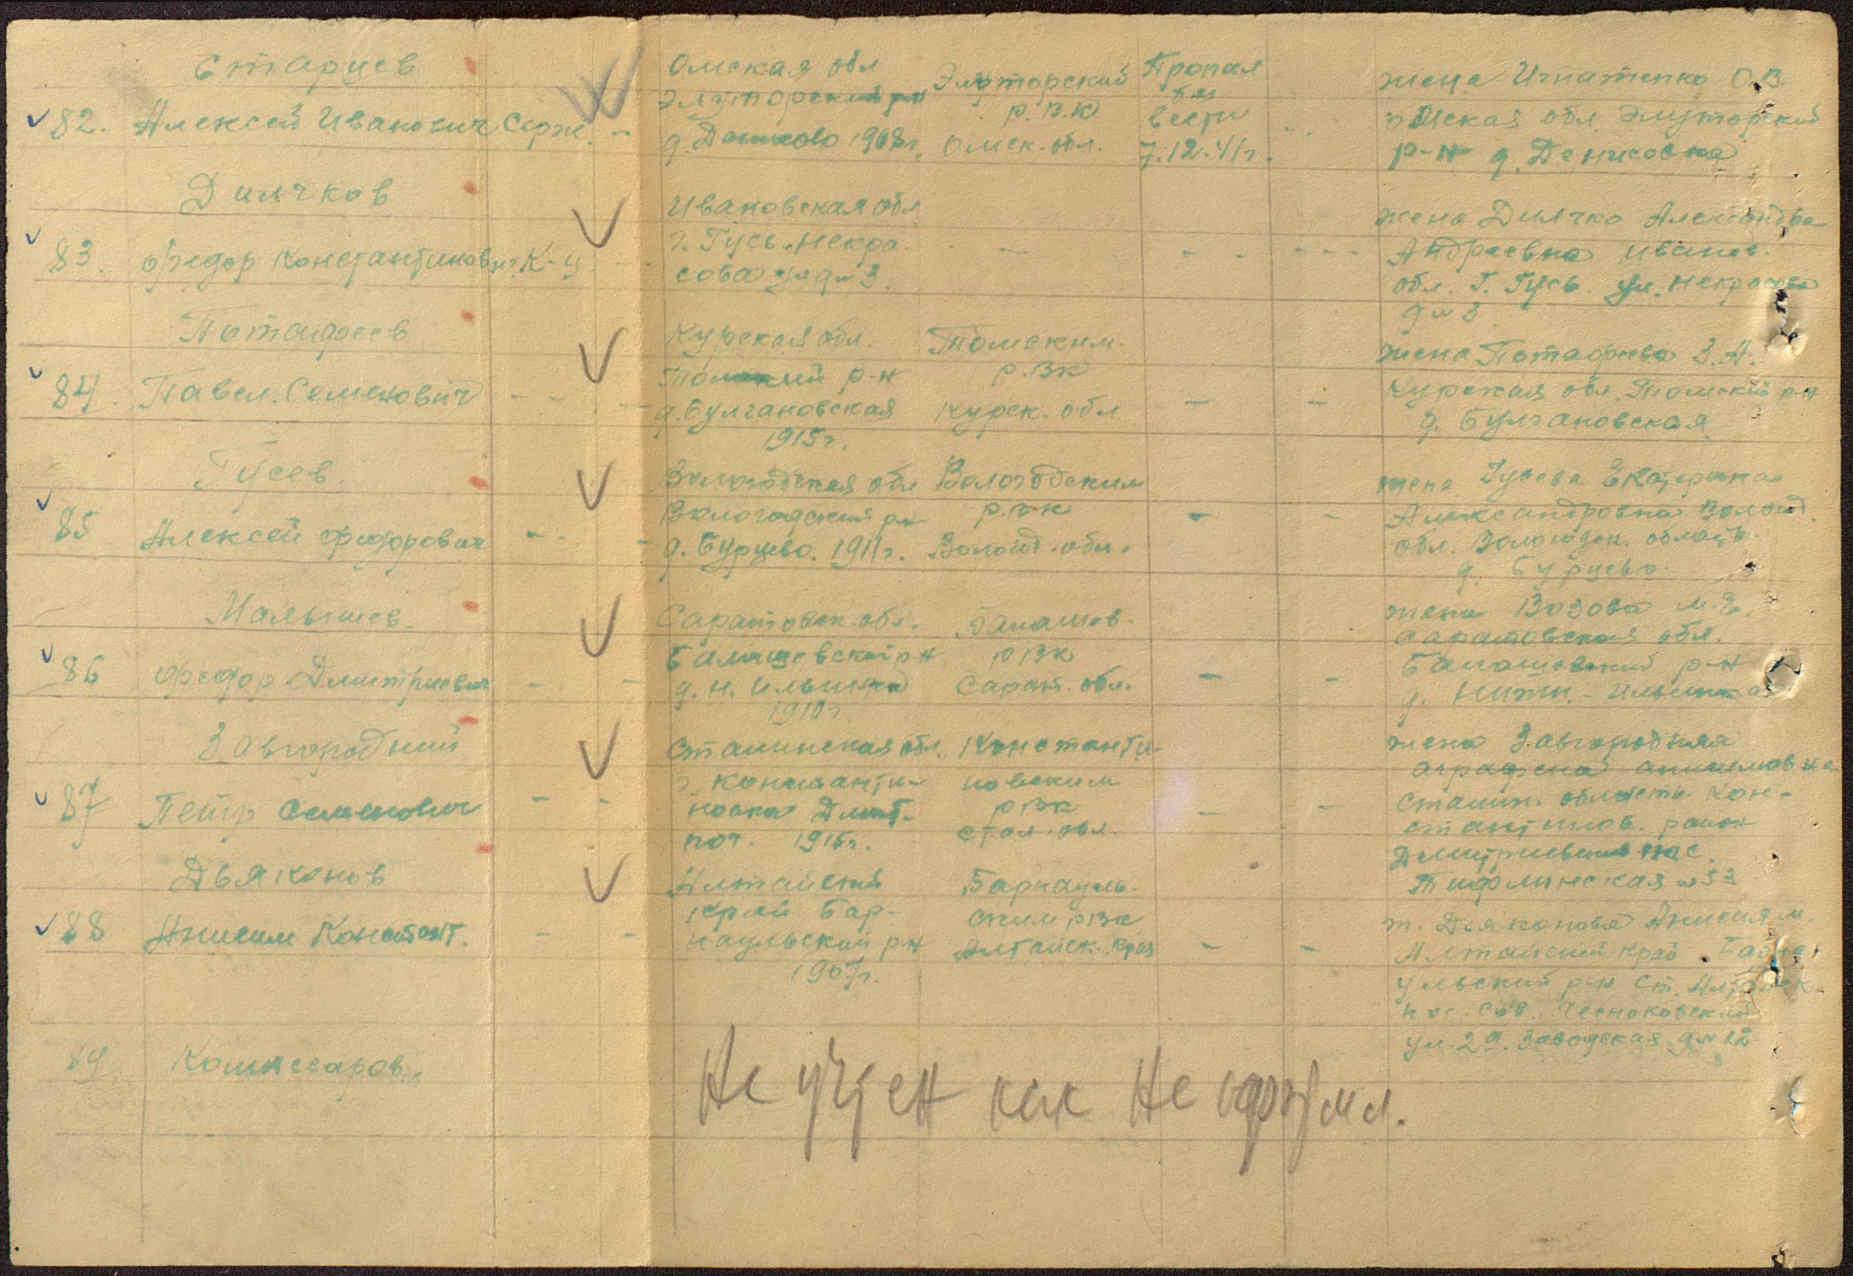 82. Старцев
Алексей Иванович Серж. -
Омская обл
Элуторский р-н
д. 1908г.
Элуторский
Р.В.К
Омск. обл.
Пропал
без
вести
7.12.41г.
жена Игнатенко О.В.
Омская обл. Элуторский
р-н д. Денисовка
83. Дилчков
Федор Константинович К-ц.
Ивановская обл
г. Гусь. Некра-
сова ул д № 3.
жена Дилчко Александра
Андреевна Иванов.
обл. Г. Гусь. ул. Некрасова
д № 3
84. Потафеев
Павел. Семенович
Курская обл.
р-н
д. Булгановская
1915г.
Томским.
РВК
Курск. обл
жена Потафиева З.А.
Курская обл. Томский р-н
д. Булгановская
85 Гусев.
Алексей Федорович
Вологодская обл
Вологодский р-н
д. Бурцево. 1911г.
Вологодским
РВК
Волог. обл.
жена Гусева Екатерина
Александровна Волог.
обл. Вологодск. область
д. Бурцево
86 Малышев.
Федор Дмитриевич
Саратовск. обл.
Балашевский р-н
д. Н. Ильинка
1910г.
Балашов.
РВК
Сарат. обл.
жена Возова М.Е.
Саратовская обл.
Балашевский р-н
д. Нижн. - Ильинка
87 Завгородний
Петр Семенович
Сталинская обл.
г. Константи-
новка Дмит.
поч. 1915г.
Константи-
новским
РВК
Стал. обл.
жена Завгородняя
Аграфена Анисимовна
Сталин. область Кон-
стантинов. район
Дмитриевский пос.
Тифлинская № 33
88 Дьяконов
Анисим Констант.
Алтайский
край Бар-
наульский р-н
1907г.
Барнауль-
ским РВК
Алтайск. края
ж. Дьяконова Анисия М.
Алтайский край. Барна-
ульский р-н ст. Алтайск.
пос. Сов. Чесноковский
ул. 2я. Заводская д № 12
89 Комиссаров.
Не учтен как не оформл.